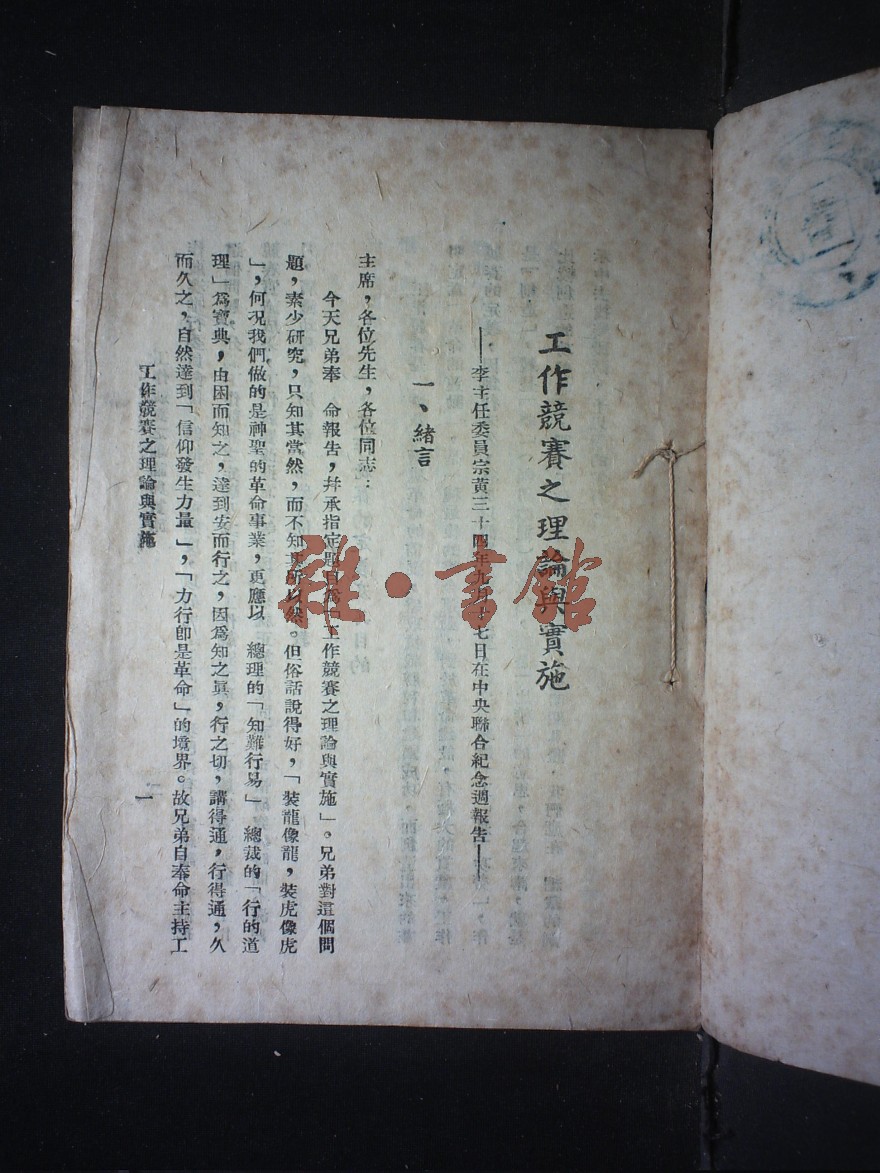 工作競賽之理論與實施
——李主任委員宗黃三十四年九月十七日在中央聯合紀念週報告——
一、緒言
主席，各位先生，各位同志：
今天兄弟奉　命報告，幷承指定題目爲「工作競賽之理論與實施」。兄弟對這個問
題，素少研究，只知其當然，而不知其所以然。但俗話說得好，「裝龍像龍，裝虎像虎
」，何况我們做的是神聖的革命事業，更應以　總理的「知難行易」　總裁的「行的道
理」爲寶典，由困而知之，達到安而行之，因爲知之眞，行之切，講得通，行得通，久
而久之，自然達到「信仰發生力量」，「力行卽是革命」的境界。故兄弟自奉命主持工
工作競賽之理論與實施
一
雜·書館